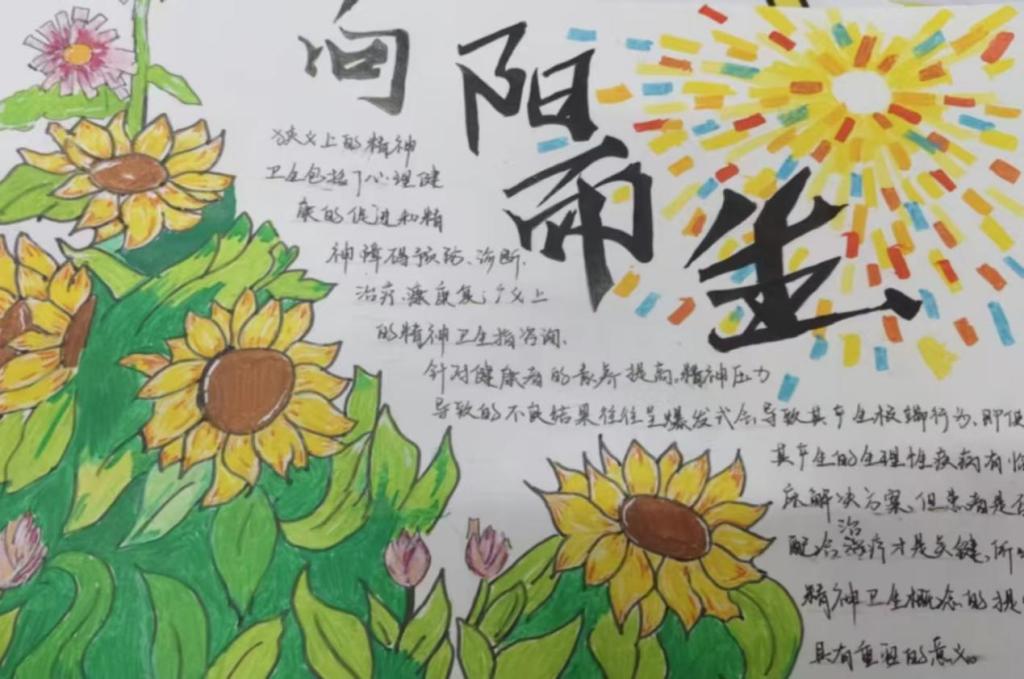 向阳而生
狭义上的精神
卫生包括了心理健
康的促进和精
神障碍预防、诊断、
治疗、康复;广义上
的精神卫生指咨询、
针对健康者的素养提高。精神压力
导致的不良结果往往呈爆发式会导致其产生极端行为、即便
其产生的生理性疾病有临
床解决方案,但患者是否
配合治疗才是关键,所以
精神卫生概念的提
具有重要的意义。